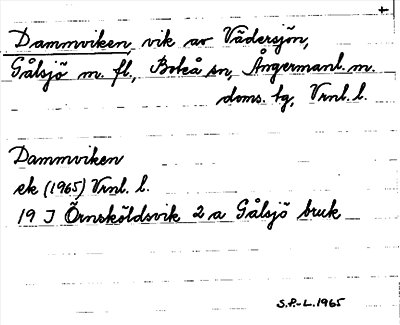 Dammviken, vik av Vädersjön,
Gålsjö m. fl., Boteå sn, Ångermanl. m.
doms. tg, Vrnl. l.
Dammviken
ek (1965) Vrnl. l.
19 J Örnsköldsvik 2 a Gålsjö bruk
S.P.-L. 1965